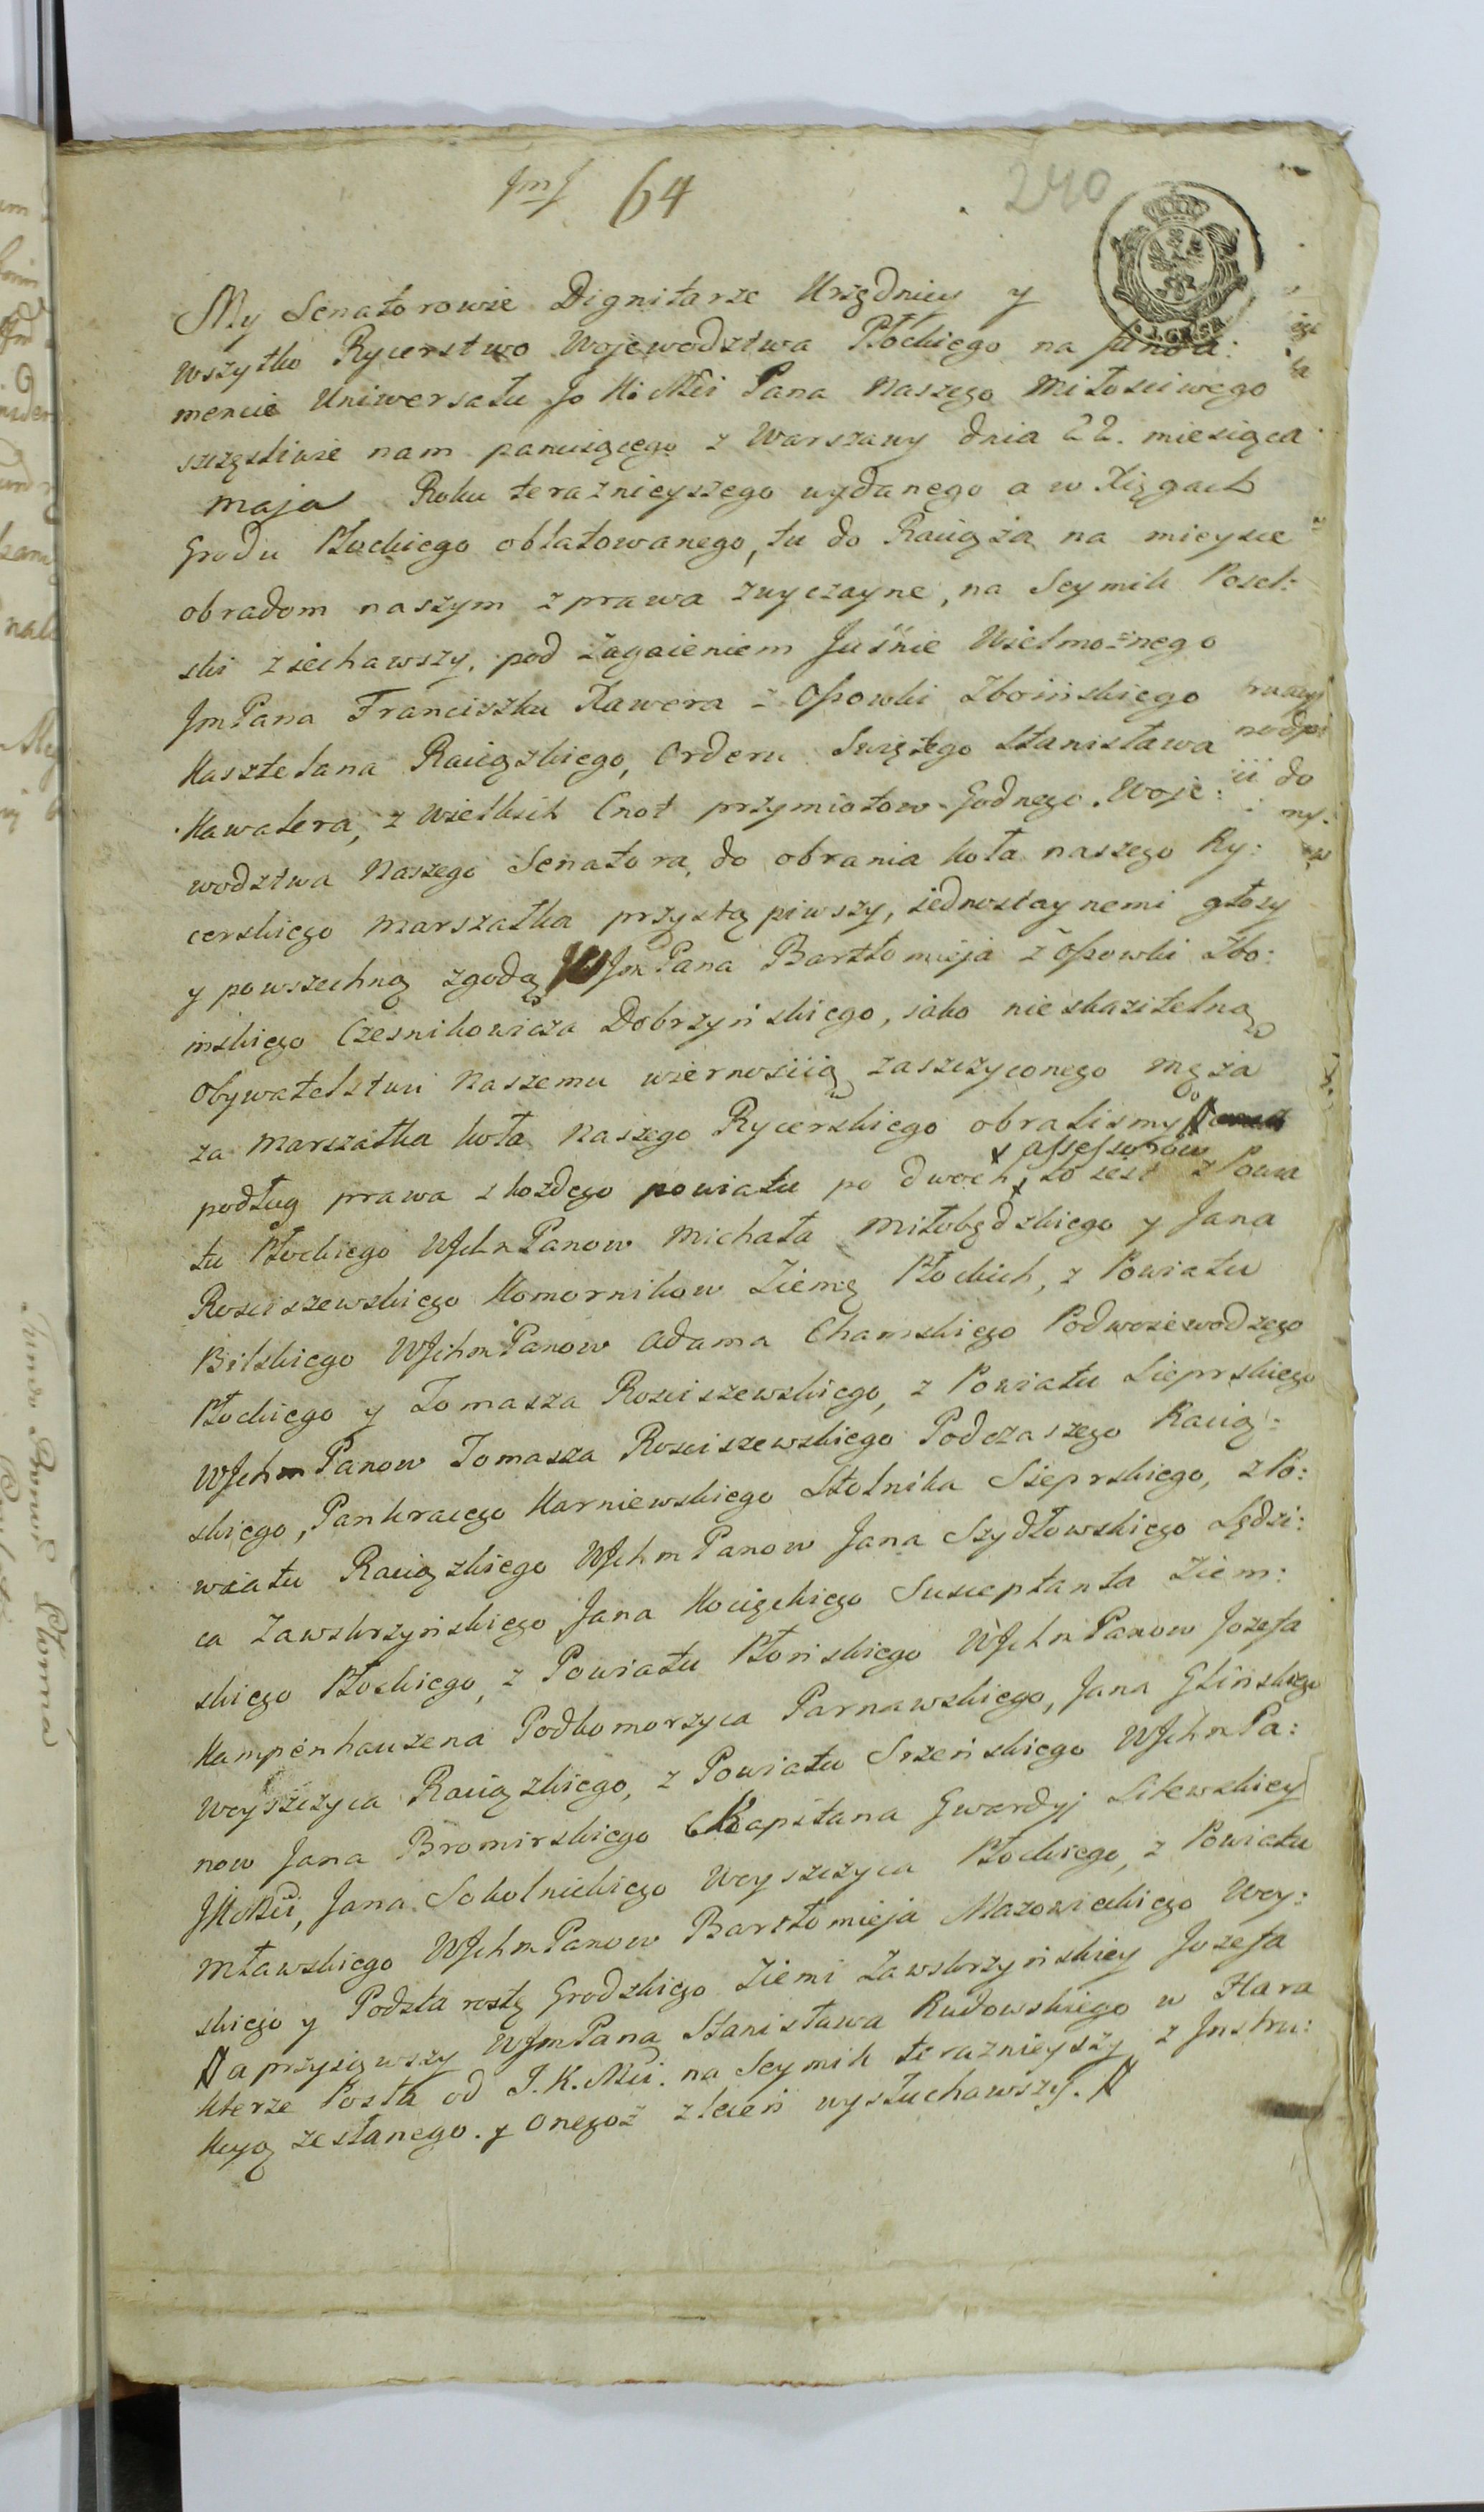 64
240
My Senatorowie Dignitarze Urzędnicy y
wszytko Rycerstwo Wojewodztwa Płockiego na funda:
mencie Uniwersału Jo K Mci Pana Naszego Miłościwego
szczęsliwie nam panuiącego z Warszawy dnia 22. miesiąca
maja Roku teraznieyszego wydanego a w Xięgach
Grodu Płockiego oblatowanego, tu do Raciąża na mieysce
obradom naszym z prawa zwyczayne, na Seymik Posel:
ski ziechawszy, pod zagaieniem Jaśnie Wielmożnego
JmPana Franciszka Xawera z Ossowki Zboińskiego
Kasztelana Raciązkiego, Orderu Swiętego Stanisława
Kawalera, z wielkich Cnot przymiotow Godnego Woje:
wodztwa Naszego Senatora, do obrania koła naszego Ry:
cerskiego Marszałka przystąpiwszy, iednostaynemi głosy
y powszechną zgodą WJmPana Bartłomieja z Ossowki Zbo:
inskiego Czesnikowicza Dobrzyńskiego, iako nieskazitelną
Obywatelstwu Naszemu wiernością zaszczyconego męża
za Marszałka koła Naszego Rycerskiego obralismy do
assessorow
podług prawa z kozdego powiatu po dwoch, to iest z Powia
tu Płockiego WJchmPanow Michała Miłobędzkiego y Jana
Rosciszewskiego Komornikow Ziemę Płockich, z Powiatu
Bilskiego WJchmPanow Adama Chamskiego Podwoiewodzego
Płockiego y Tomasza Rosciszewskiego, z Powiatu Sieprskiego
WJchmPanow Tomasza Rosciszewskiego Podczaszego Raciąż:
skiego, Pankracego Karniewskiego Stolnika Sieprskiego, z Po:
wiatu Raciązkiego WJchmPanow Jana Szydłowskiego Sędzi:
ca Zawskrzyńskiego Jana Kocięckiego Susceptanta Ziem:
skiego Płoskiego, z Powiatu Płońskiego WJchmPanow Jozefa
Kampenhauzena Podkomorzyca Parnawskiego, Jana Glińskiego
Woyszczyca Raciązkiego, z Powiatu Szreńskiego WJchmPa:
now Jana Bromirskiego Kapitana Gwardyj Litewskiey
JKoMci, Jana Sokolnickiego Woyszczyca Płockiego, z Powiatu
Mławskiego WJchmPanow Bartłomieja Mazowieckiego Woy:
skiego y Podstarostę Grodzkiego Ziemi Zawskrzyńskiey Jozefa
a przysiąwszy WJmPana Stanisława Rudowskiego w Hara
kterze Posła od J.K.Mci. na Seymik teraznieyszy z Jnstru:
kcyą zesłanego. y Onegoż zleceń wysłuchawszy.